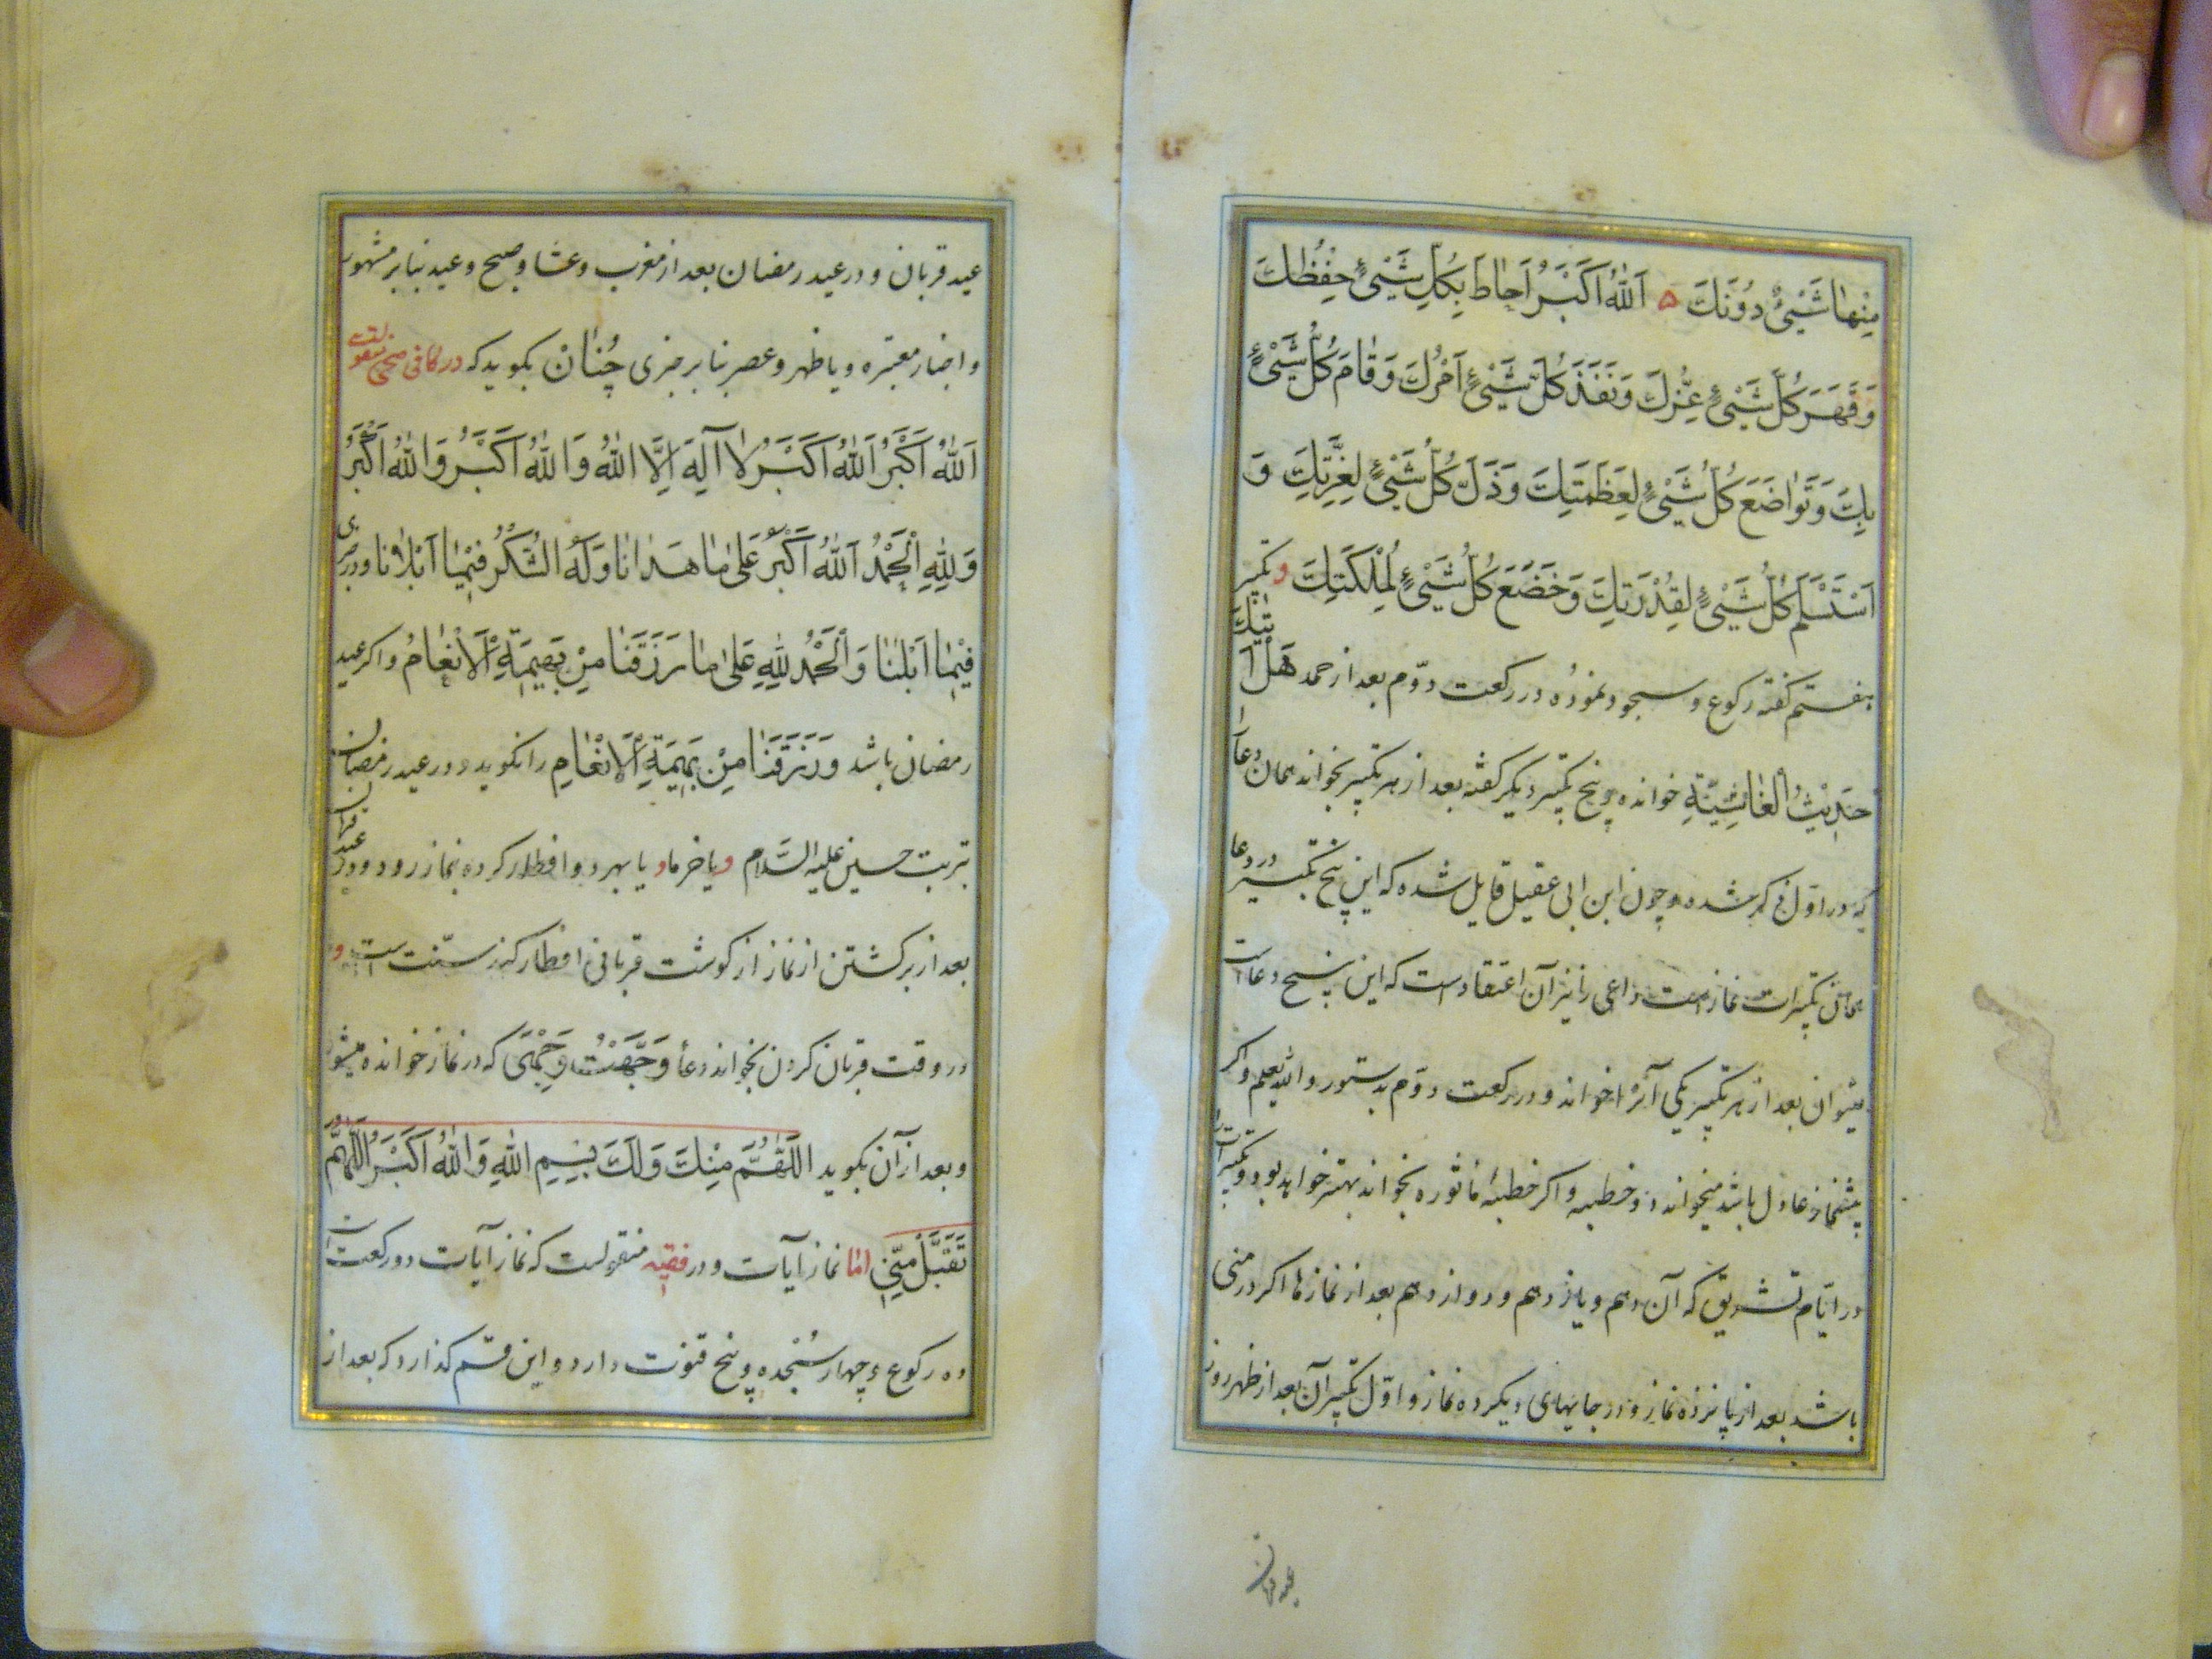 مِنْهٰا شَيْئٌ دُونَكَ ۵ اَللّٰهُ اَكْبَرُ اَحاطَ بِكُلِّ شَيْئٍ حِفْظُكَ
وَقَهَرَ كُلَّ شَيْئٍ عِزُّكَ وَنَفَذَ كُلَّ شَيْئٍ اَمْرُكَ وَقٰامَ كُلُّ شَيْئٍ
بِكَ وَتَوٰاضَعَ كُلُّ شَيْئٍ لِعَظَمَتِكَ وَذَلَّ كُلُّ شَيْئٍ لِعِزَّتِكَ وَ
اَسْتَسْلَمَ كُلُّ شَيْئٍ لِقُدْرَتِكَ وَخَضَعَ كُلُّ شَيْئٍ لِمُلْكَتِكَ و تكبير
هفتم كفته ركوع و سجود نموده در ركعت دوّم بعد از حمد هَلْ اَتٰيكَ
حَدِيْثُ الْغٰاشِيَةِ خوانده و پنج تكبير ديكر كفته بعد از هر تكبير بخواند همان دعا را
كه در اوّل ذكر شده و چون ابن ابی عقيل قايل شده كه اين پنج تكبير در دعا
همان تكبيرات نماز است داعی را نيز آن اعتقاد است كه اين پنج دعا است
ميتوان بعد از هر تكبير يكی آنرا خواند و در ركعت دوّم بدستور والله يعلم و اكر
پيشنماز عادل باشد ميخواند دو خطبه و اكر خطبهٔ ماثوره بخواند بهتر خواهد بود و تكبيرات
در ايّام تشريق كه آن دهم و يازدهم و دوازدهم بعد از نمازها اكر در منی
باشد بعد از پانزده نماز و در جايهای ديكر ده نماز و اوّل تكبير آن بعد از ظهر روز
عيد قربان
عيد قربان و در عيد رمضان بعد از مغرب و عشا و صبح و عيد بنابر مشهور
و اخبار معتبره و يا ظهر و عصر بنابر خبری چُنٰانْ بكويد كه در كافی منقولست
اَللّٰهُ اَكْبَرُ اَللّٰهُ اَكْبَرُ لٰا آلِهَ اِلَّا اللّٰهُ وَاَللّٰهُ اَكْبَرُ وَاللّٰهُ اَكْبَرُ
وَلِلّٰهِ اْلحَمْدُ اَللّٰهُ اَكْبَرُ عَلىٰ مٰا هَدٰانٰا وَلَهُ الشُّكْرُ فِيْمٰا اَبْلٰانا
فِيْمٰا اَبْلٰنٰا وَاْلحَمْدُ لِلّٰهِ عَلىٰ مٰا رَزَقَنٰا مِنْ بَهِيْمَةِ اْلاَنْعٰامُ و اكر عيد
رمضان باشد وَرَزَقَنٰا مِنْ بَهِيْمَةِ اْلاَنْعٰامِ را نكويد و در عيد رمضان
بتربت حسين عليه السَّلام و يا خرما و يا بهر دو افطار كرده بنماز رود و در عيد قربان
بعد از بركشتن از نماز از كوشت قربانی افطار كند سنّت است و
در وقت قربان كردن بخواند دعأ وَجَّهْتُ وَجْهِىَ كه در نماز خوانده ميشود
و بعد از آن بكويد اَللّٰهُمَّ مِنْكَ وَلَكَ بِسْمِ اللّٰهِ وَاللّٰهُ اَكْبَرُ اَللّٰهُمَّ
تَقَبَّلْ مِنِّى امّا نماز آيات و در فقيه منقولست كه نماز آيات دو ركعت است
ده ركوع و چهار سُجده و پنج قنوت دارد و اين قسم كذارد كه بعد از